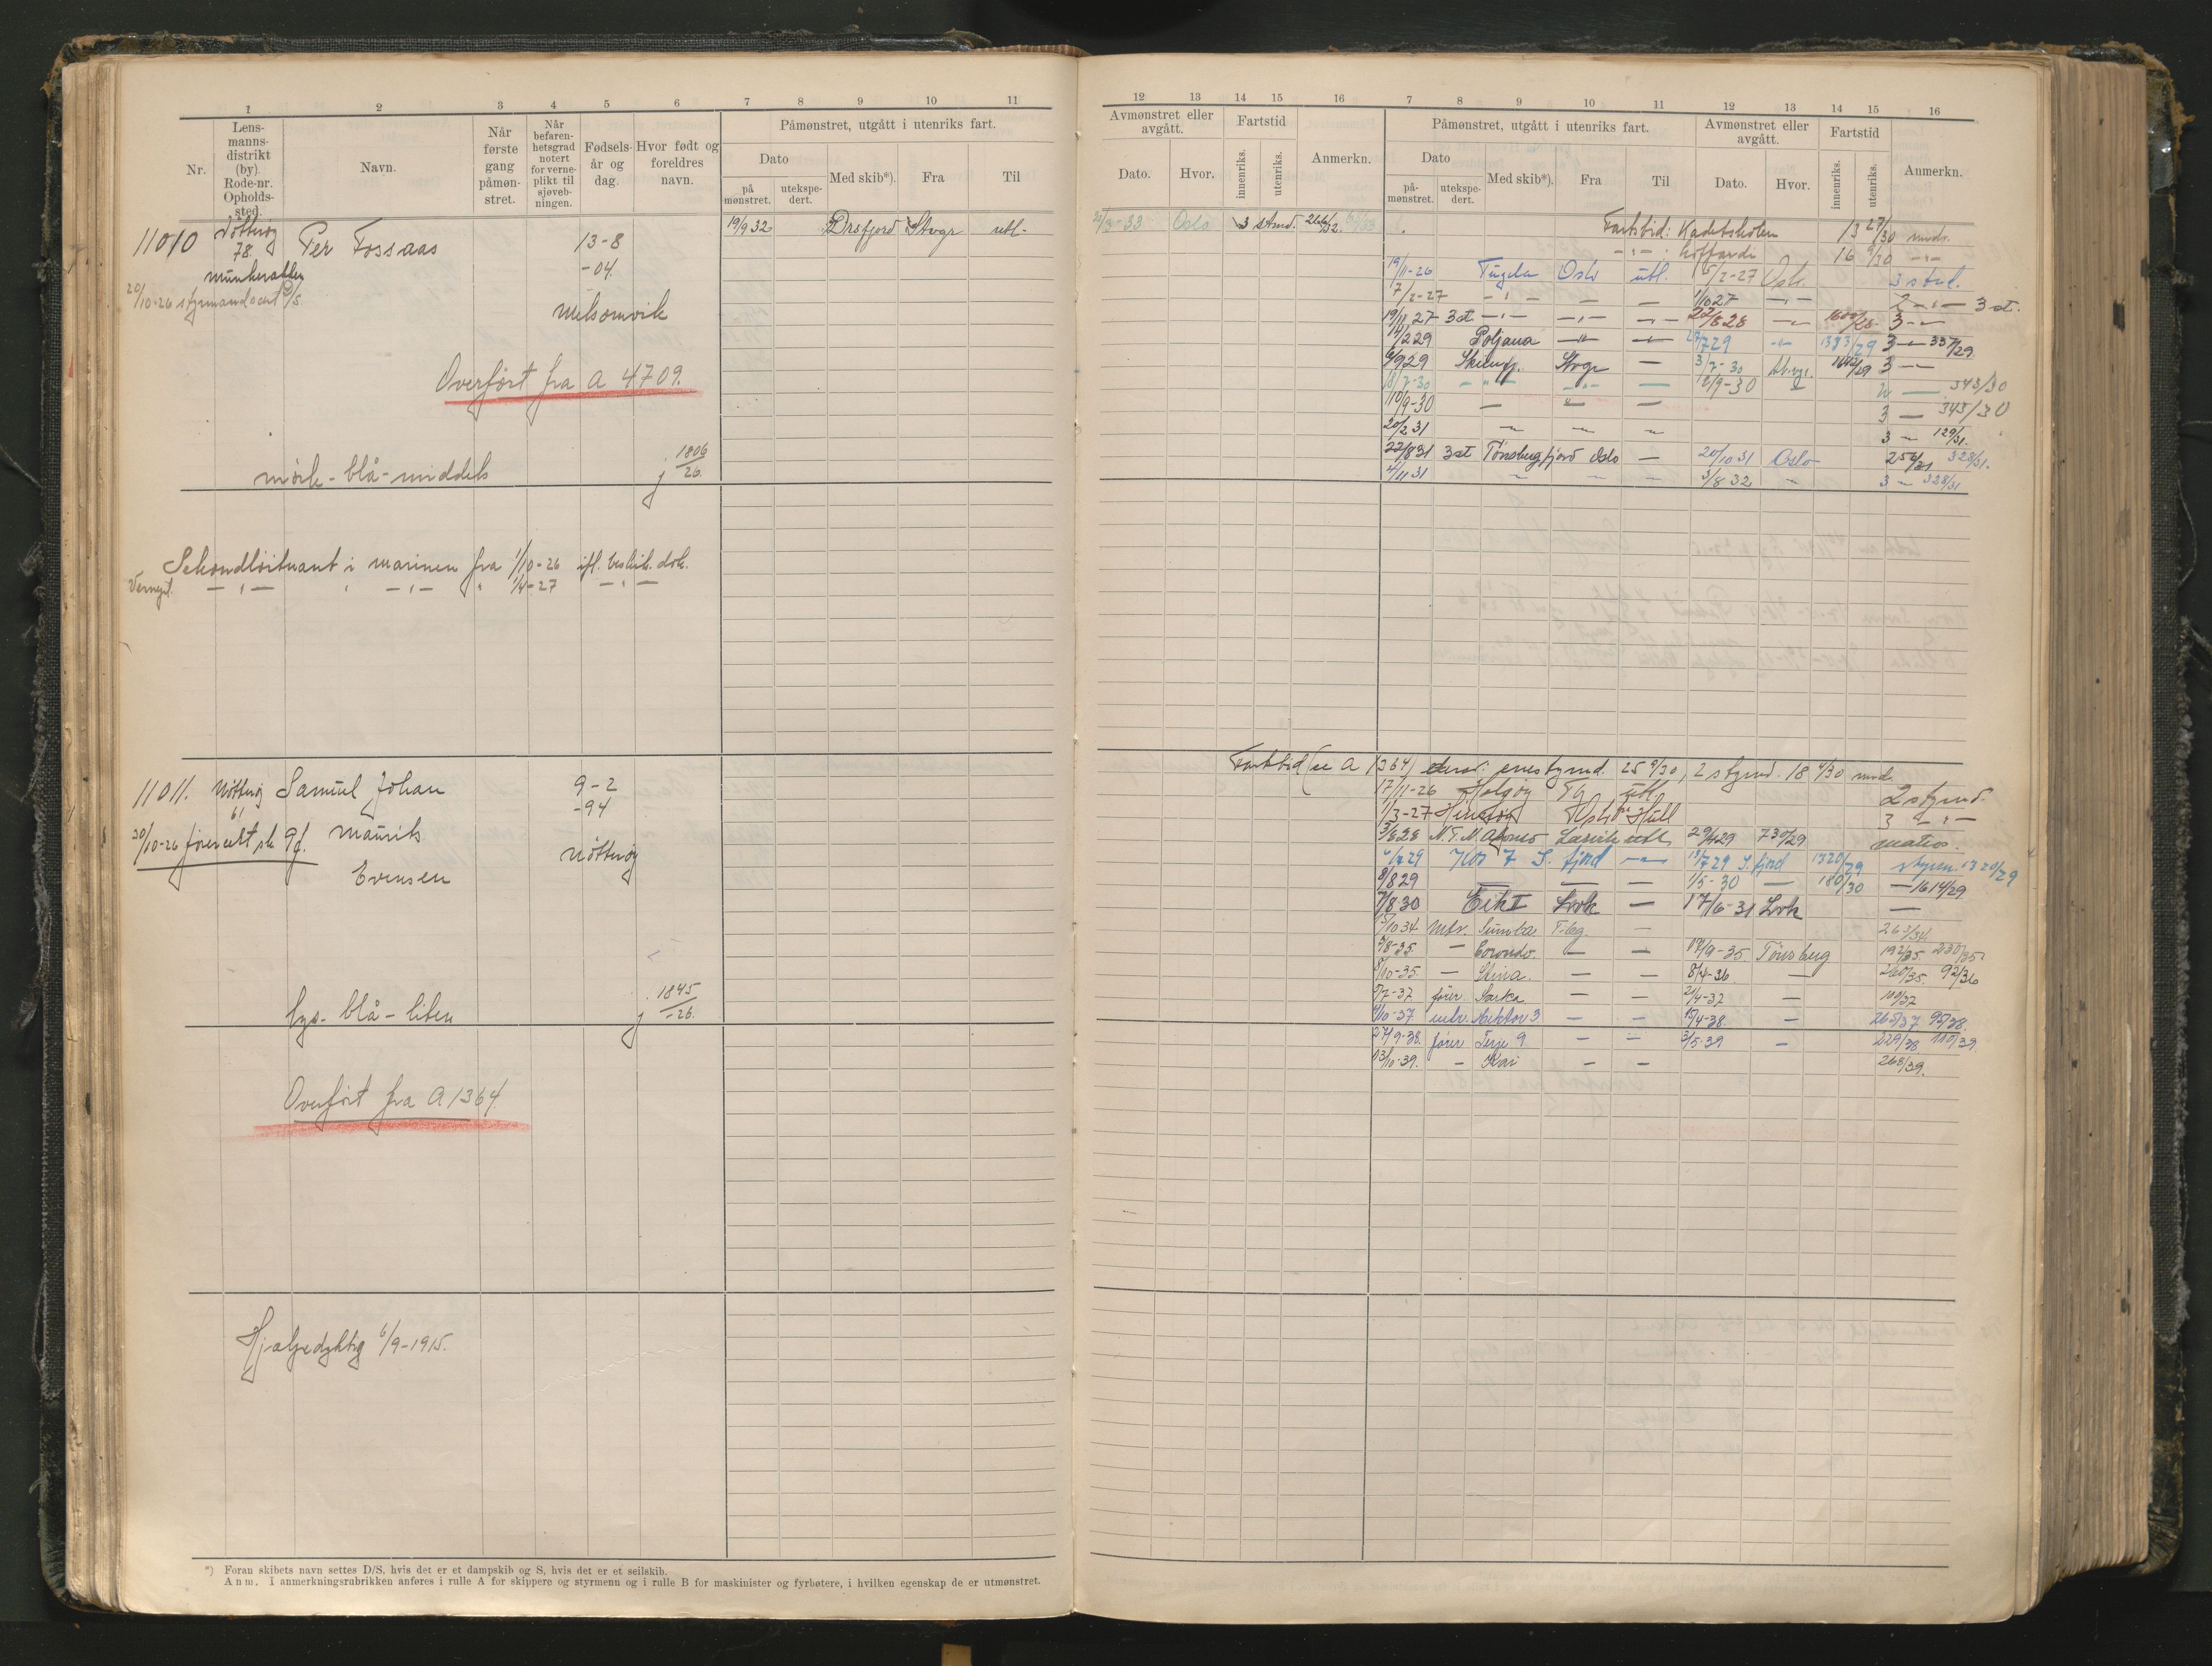 1 2 3 4 5 6 7 8 9 10 11
Nr.
Lens-
manns-
distrikt
(by).
Rode-nr.
Opholds-
sted.
Navn.
Når
første
gang
påmøn-
stret.
Når
befaren-
hetsgrad
notert
for verne-
plikt til
sjøveb-
ningen.
Fødsels-
år og
dag.
Hvor født og
foreldres
navn.
Påmønstret, utgått i utenriks fart.
Dato
på
mønstret.
utekspe-
dert.
Med skib*).
Fra
Til
11010 Nøtterøy Per Fossaas 13-8
78. -04.
20/10-26 styrmandscert
Melsomvik
19/9 32 Stvgr utl-
Overført fra A 4709.
mørk-blå-middels j 1806/26.
Sekondløitnant i marinen fra 1/10-26 ifl. beskik. dok.
Vernepl. — " — " — " — " 1/4-27 — " —
11011. Nøtterøy Samuel Johan 9-2
61 -94
30/10-26 førercert sk Maurits
Nøtterøy
Evensen
lys- blå - liten j 1845/-26.
Overført fra A 1364
Hjælpedyktig 6/9-1915.
*) Foran skibets navn settes D/S, hvis det er et dampskib og S, hvis det er et seilskib.
Anm. I anmerkningsrubrikken anføres i rulle A for skippere og styrmenn og i rulle B for maskinister og fyrbøtere, i hvilken egenskap de er utmønstret.
12 13 14 15 16 7 8 9 10 11 12 13 14 15 16
Avmønstret eller
avgått.
Dato.
Hvor.
Fartstid
innenriks.
utenriks.
Anmerkn.
Påmønstret, utgått i utenriks fart.
Dato
på-
mønstret.
utekspe-
dert.
Med skib*).
Fra
Til
Avmønstret eller
avgått.
Dato.
Hvor.
Fartstid
innenriks.
utenriks.
Anmerkn.
21/3-33 Oslo 3 stmd.
Fartstid: Kadetskolen 13 27/30 mnd.
— " — : koffardi 16 9/30 — " —
19/11-26 Tugela Oslo utl. 5/2-27 Oslo 3 stm.
7/2-27 — " — — — 1/10 27 — " — 2 — " — 3 st.
19/11 27 3 st — " — — " — — " — 22/8 28 — " — 3 — " —
14/2 29 Poljana — " — — " — 29/7 29 — " — 1383/29 3 — " — 337/29
6/9 29 Stvgr — 3/7-30 3 — " —
18/7-30 — " — — " — — 12/9-30 2 — 343/30
10/9-30 — — " — — 3 — 343/30
20/2 31 — " — — " — — " — 3 — 129/31.
22/8 31 3 st Tønsbergfjord Oslo — 20/10 31 Oslo 328/31.
4/11 31 — " — — " — — " — 3/8 32 — " — 3 — 328/31
Fartstid (se A 1364) derav: enestyrmd. 25 9/30, 2 styrmd. 18 4/30 mnd.
17/11-26 Tbg utl. 2 styrmd.
1/3-27 Oslo Hull 3 — " —
3/8 28 Larvik utl. 29/4 29 730/29. matros.
6/7 29 Kos 7 S. fjord — " — 13/7 29 S. fjord 1320/29 styrm. 1320/29
8/8 29 — — — 1/5-30 — 180/30 — 1614/29
7/8 30 Eik I Lvik — 17/6-31 Lvik —
5/10 34 mtr. Sumba Tbg — 263/34.
7/8-35 — Coronda — — 17/9-35 Tønsberg 192/35 230/35
8/10-35. — Stina. — — 8/4-36 — 260/35. 92/36
5/7-37 fører Sarka — — 21/4-37 — 100/37
1/10-37 mtr. Nektor 3. — — 15/4-38. — 265/37 95/38.
27/9-38. fører Terje 9. — — 3/5-39 — 229/38 110/39.
13/10-39. — Kari — — 268/39.